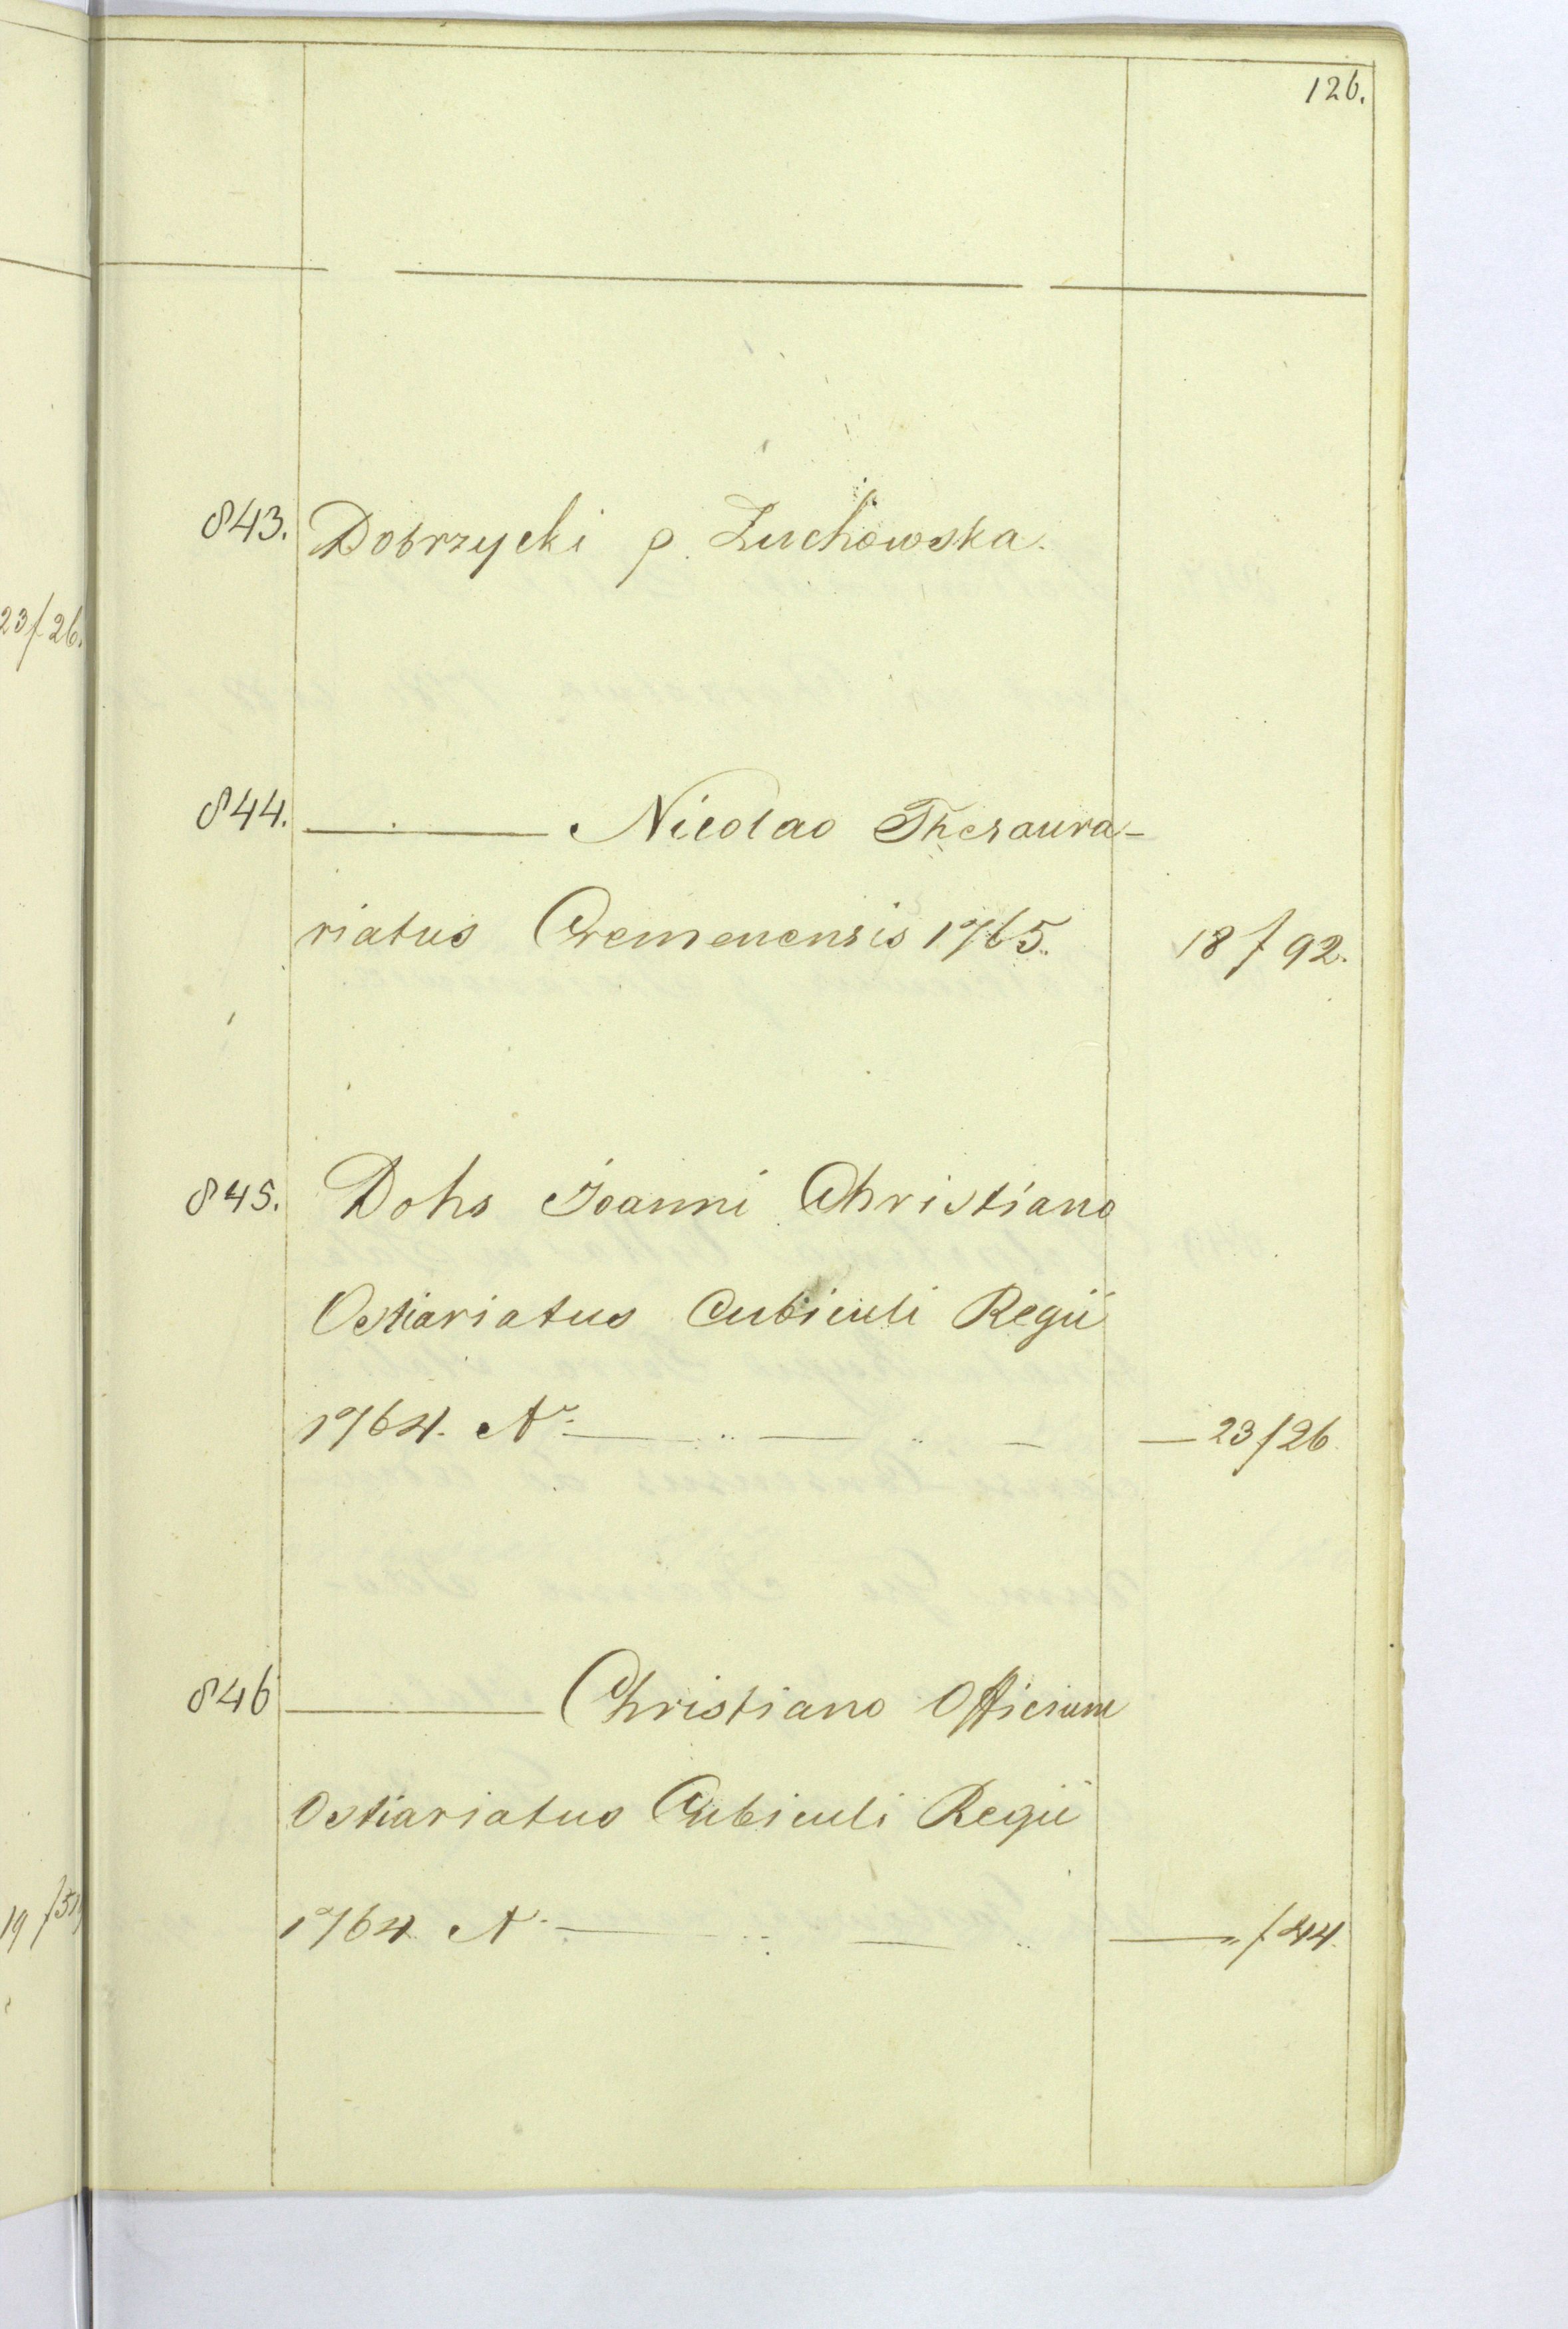 126.
843. Dobrzycki p. Zuchowska.
844. ——— Nicolao Thesaura-
riatus Cremenensis 1765. 18 / 92.
845. Dohs Joanni Christiano
Ostiariatus Cubiculi Regii
1764. N. — „ — „ — — 23 / 26
846 ——— Christiano Officium
Ostiariatus Cubiculi Regii
1764. N. — „ — „ — „ / 44.
23 / 26.